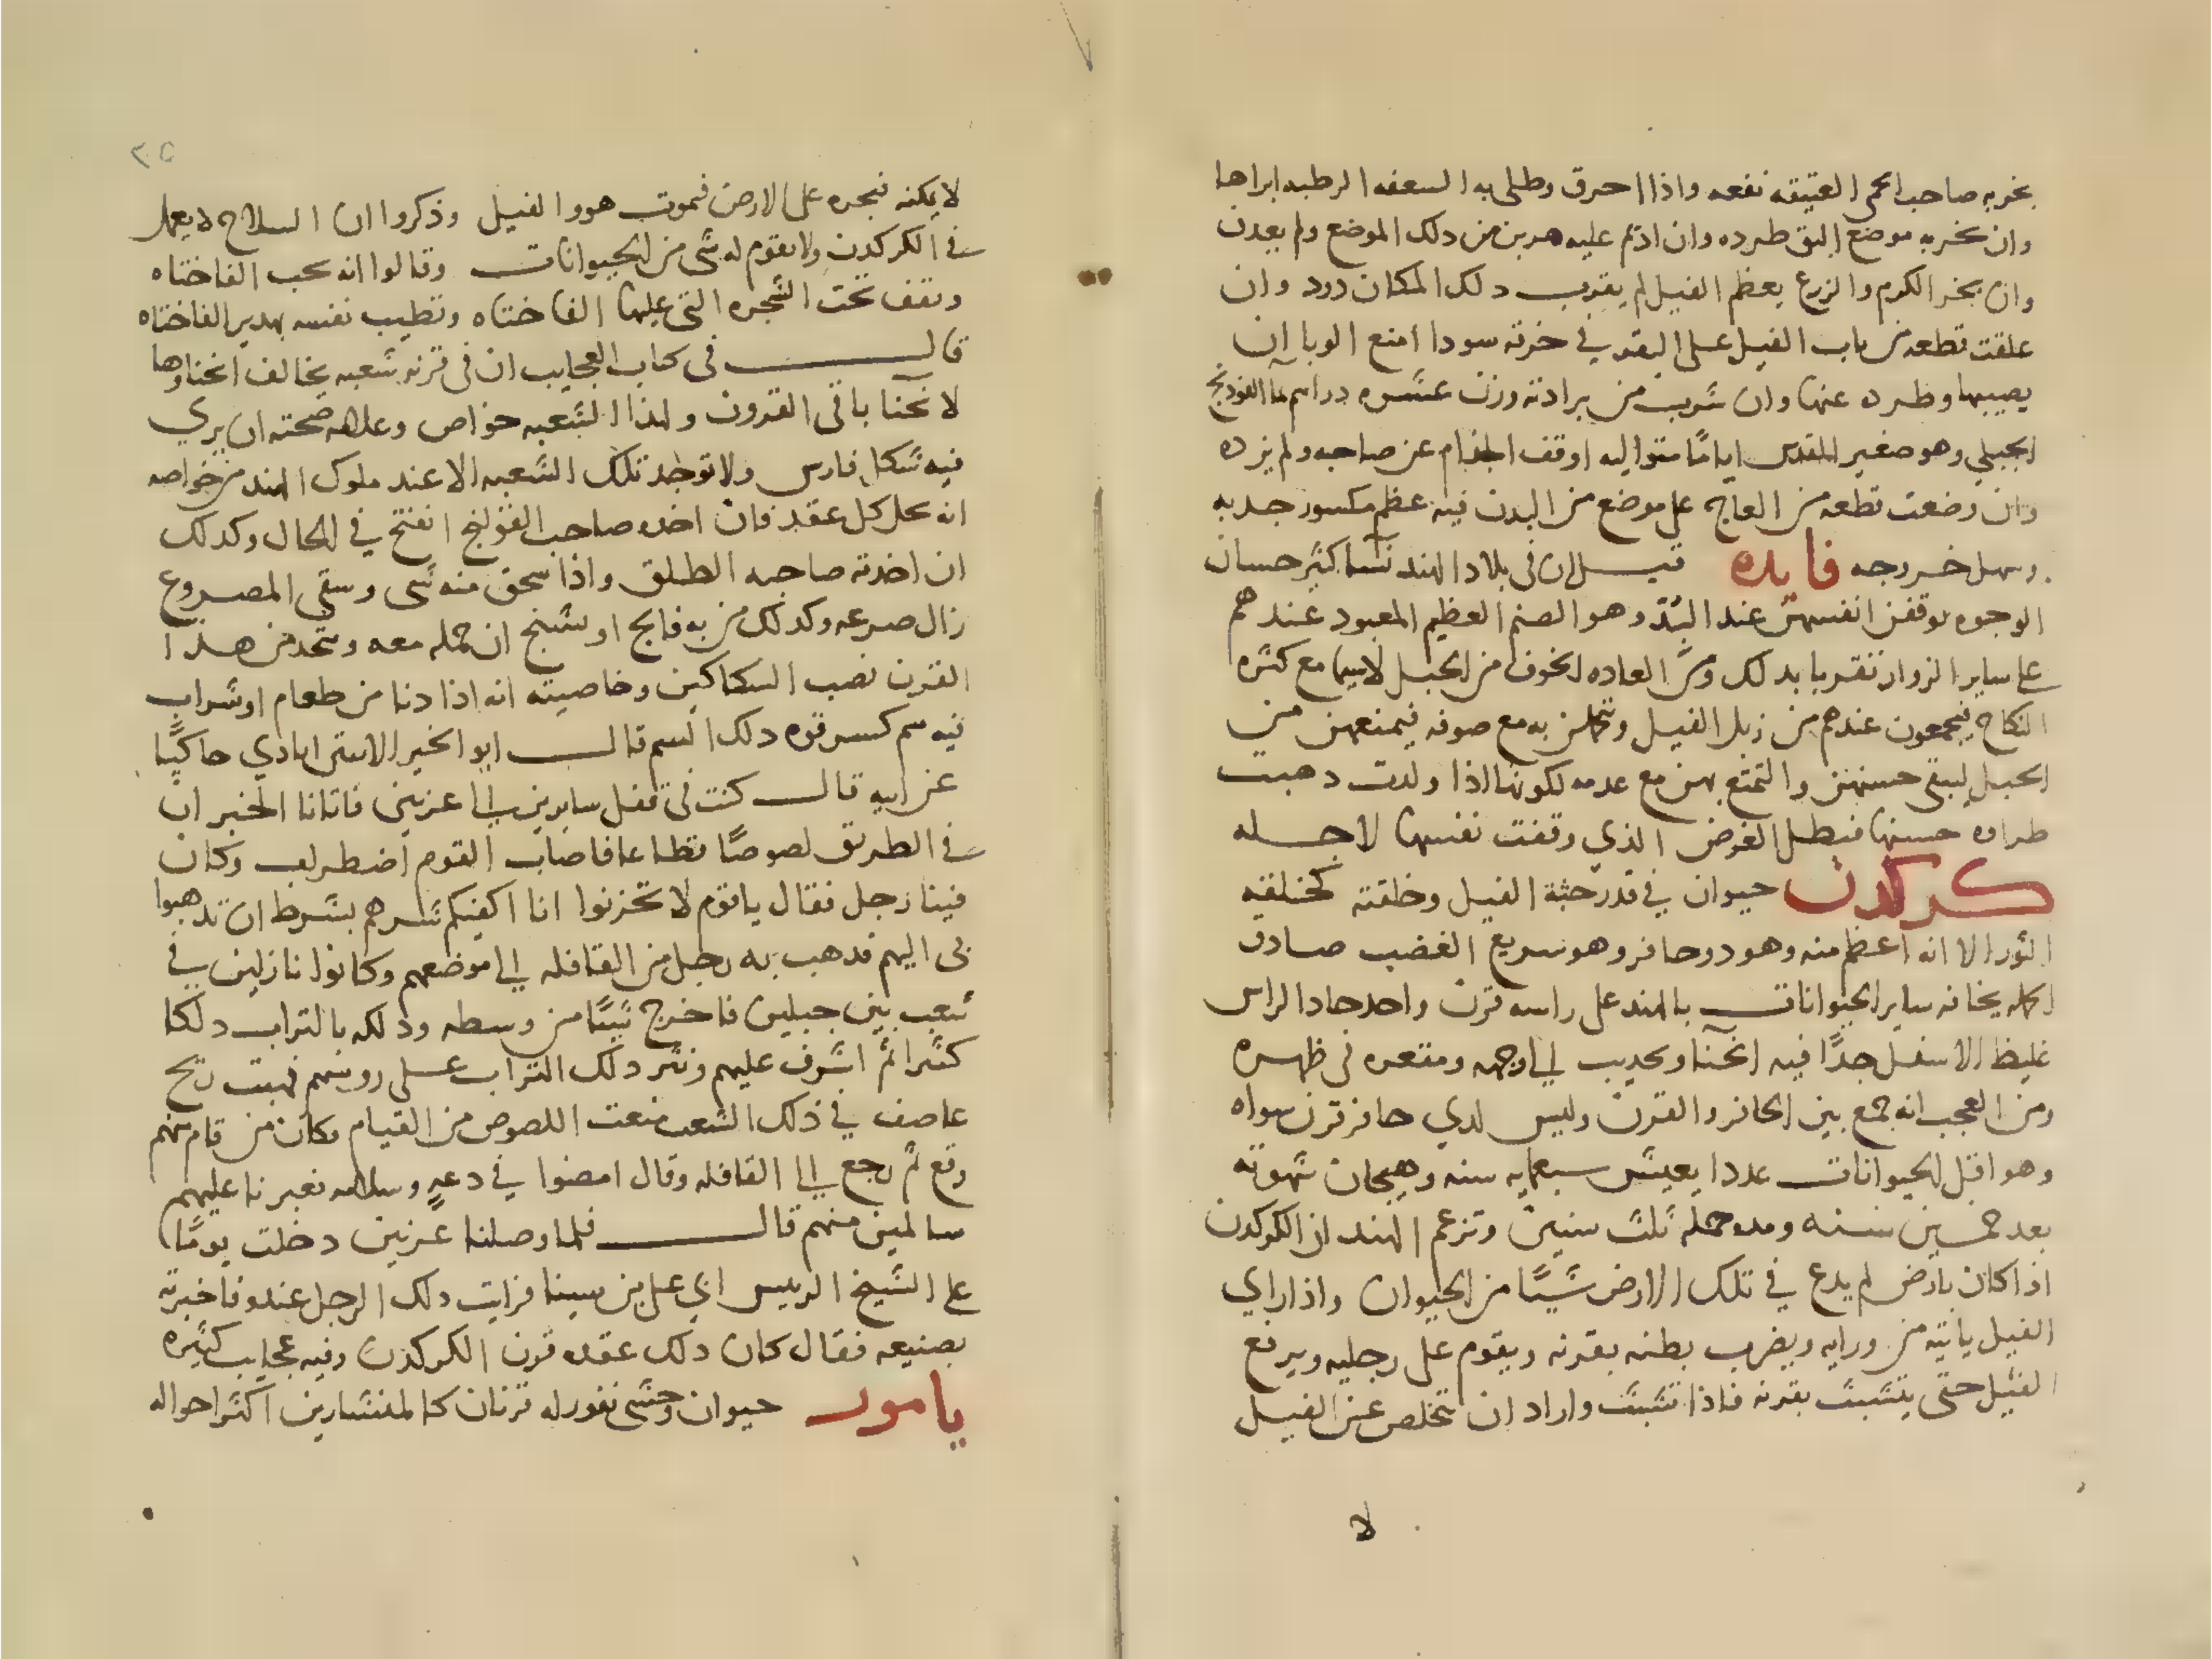 بخر به صاحب الحمى العتيقه نفعه واذا احرق وطلى به السعفه الرطبه ابراها
وان بخر به موضع البق طرده وان اديم عليه هربن من دلك الموضع ولم يعدن
وان بخر الكرم والزرع بعظم الفيل لم يقرب دلك المكان دود وان
علقت قطعه من ناب الفيل على البقر في خرقه سودا امنع الوبا ان
يصيبها وطرده عنها وان شرب من برادته وزن عشره دراهم بما الفودنج
الجبلي وهو صغير اياما متواليه اوقف الجذام عن صاحبه ولم يزده
وان وضعت قطعه من العاج على موضع من البدن فيه عظم مكسور جدبه
وسهل خروجه فايده قيل ان في بلاد الهند نسا كثير حسان
الوجوه يوقفن انفسهن عند البد وهو الصنم العظيم المعبود عندهم
على ساير الزوار تقربا بدلك ومن العاده الخوف من الحبل لاسيما مع كثره
النكاح فيجمعون عندهم من زبل الفيل وتتحملن به مع صوفه فيمنعهن من
الحبل ليبقى حسنهن والتمتع بهن مع عدمه لكونها اذا ولدت دهبت
طراوه حسنها فبطل الغرض الذي وقفت نفسها لاجله
كركدن حيوان في قدر جثة الفيل وخلقته كخلقه
الثور الا انه اعظم منه وهو دو حافر وهو سريع الغضب صادق
الحمله يخافه ساير الحيوانات بالهند على راسه قرن واحد حاد الراس
غليظ الاسفل جدا فيه انحنا وتحديب الى وجهه ومقعره في ظهره
ومن العجب انه جمع بين الحافر والقرن وليس لدي حافر قرن سواه
وهو اقل الحيوانات عددا يعيش سبعمايه سنه وهيجان شهوته
بعد خمسين سنه ومده حمله ثلث سنين وتزعم الهند ان الكركدن
اذا كان بارض لم يدع في تلك الارض شيئا من الحيوان واذا راي
الفيل ياتيه من ورايه ويضرب بطنه بقرنه ويقوم على رجليه ويرفع
الفيل حتى يتشبث بقرنه فاذا تشبث واراد ان يتخلص عن الفيل
لا
٢٥
لا يمكنه فيجره على الارض فيموت هو والفيل وذكروا ان السلاح لا يعمل
في الكركدن ولا يقوم له شي من الحيوانات وقالوا انه يحب الفاختاه
ويقف تحت الشجره التي عليها الفاختاه وتطيب نفسه بهدير الفاختاه
قال في كتاب العجايب ان في قرنه شعبه يخالف انحناوها
لانحنا باقي القرون ولهذا الشعبه خواص وعلامه صحته ان يري
فيه شكل فارس ولا توجد تلك الشعبه الا عند ملوك الهند من خواصه
انه يحل كل عقد فان اخده صاحب القولنج انفتح في الحال وكدلك
ان اخدته صاحبه الطلق واذا سحق منه شي وسقي المصروع
زال صرعه وكدلك من به فالج او تشنج ان حمله معه ويتخد من هدا
القرن نصب السكاكين وخاصيته انه اذا دنا من طعام او شراب
فيه سم كسر قوه دلك السم قال ابو الخير الاستراباذي حاكيا
عن ابيه قال كنت في قفل سايرين الى غزنين فاتانا الخبر ان
في الطريق لصوصا قطاعا فاصاب القوم اضطراب وكان
فينا رجل فقال ياقوم لا تحزنوا انا اكفيكم شرهم بشرط ان تدهبوا
بي اليهم فدهب به رجل من القافله الى موضعهم وكانوا نازلين في
شعب بين جبلين فاخرج شيئا من وسطه ودلكه بالتراب دلكا
كثيرا ثم اشرف عليهم ونثر دلك التراب على روسهم فهبت ريح
عاصف في ذلك الشعب منعت اللصوص من القيام وكان من قام منهم
وقع ثم رجع الى القافله وقال امضوا في دعه وسلامه فعبرنا عليهم
سالمين منهم قال فلما وصلنا غزنين دخلت يوما
على الشيخ الرييس ابي علي بن سينا فرايت دلك الرجل عنده فاخبرته
بصنيعه فقال كان دلك عقده قرن الكركدن وفيه عجايب كثيره
يامور حيوان وحشي نفور له قرنان كالمنشارين اكثر احواله